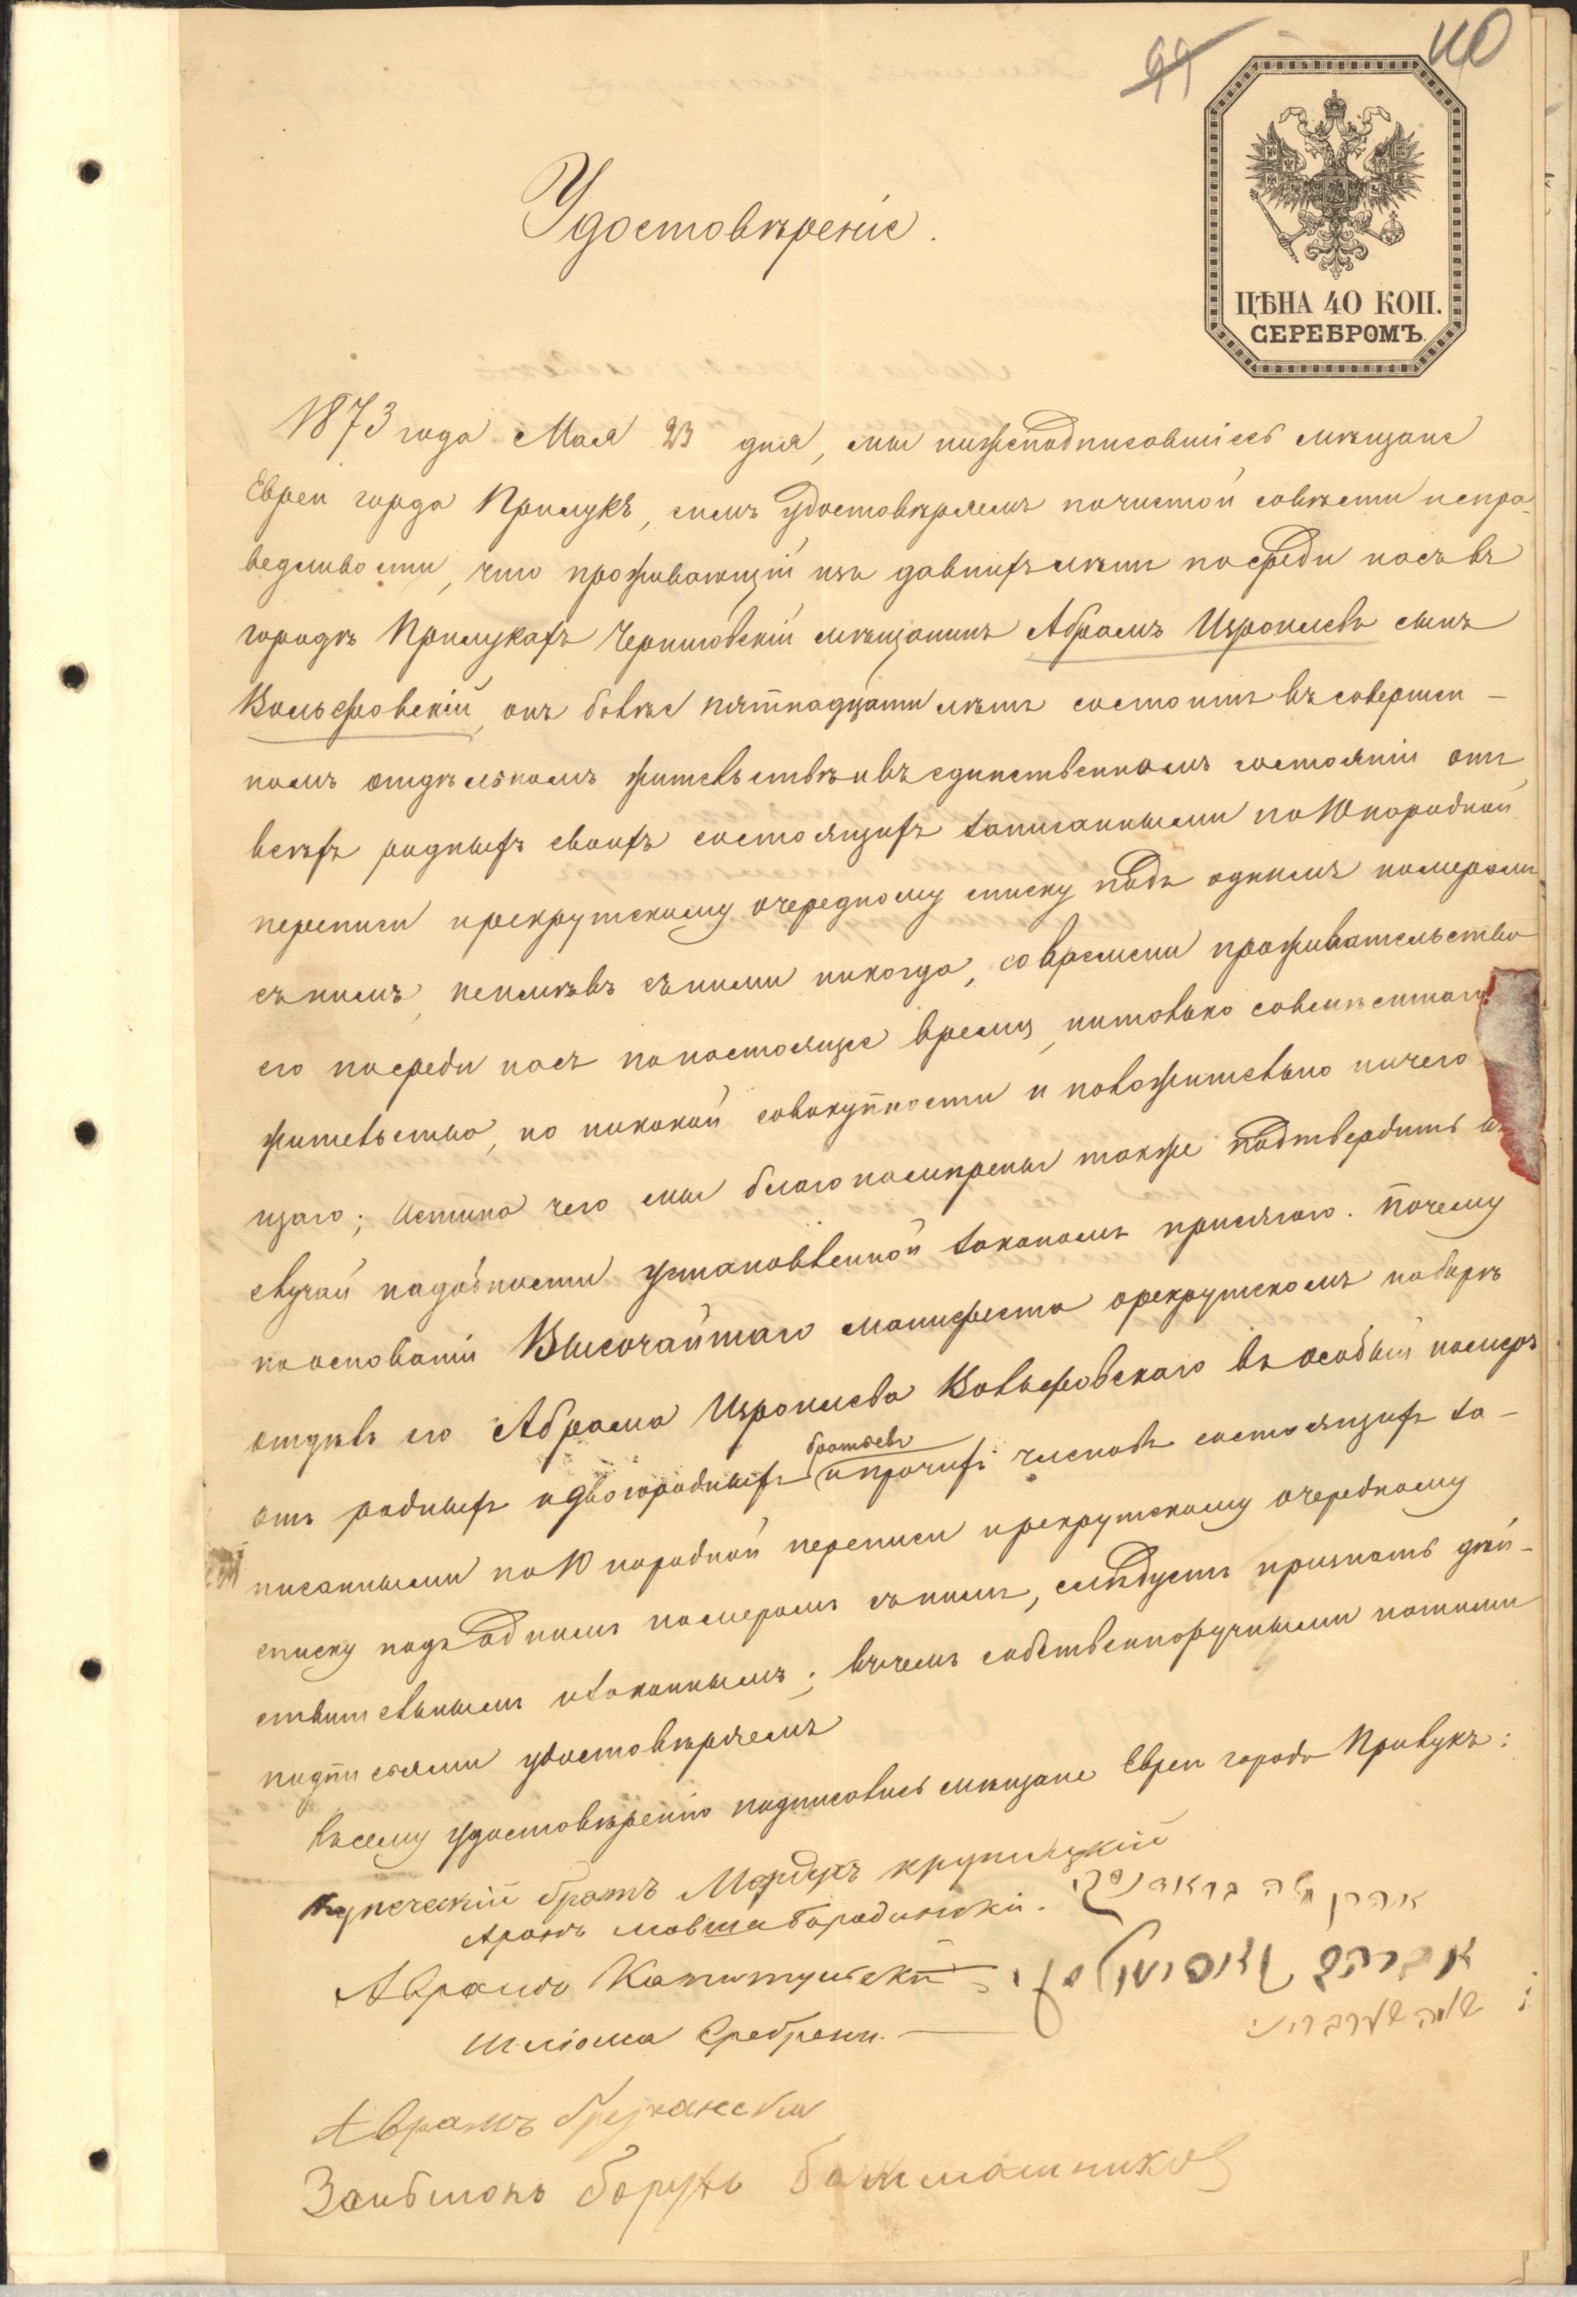 110
99
ЦѢНА 40 КОП.
СЕРЕБРОМЪ.
Удостовѣреніе.
1873 года Мая 23 дня, мы нижеподписавшіесь мѣщане
Евреи города Прилукъ, симъ удостовѣряемъ почистой совѣсти испра-
ведливости, что проживающій изъ давнихъ лѣтъ посреди насъ въ
городѣ Прилукахъ Черниговскій мѣщанинъ Абрамъ Изроилевъ сынъ
Вольфовскій, онъ болѣе пятнадцати лѣтъ состоитъ въ совершен-
номъ отдѣльномъ жительствѣ и въ единственномъ состояніи отъ
всѣхъ родныхъ своихъ состоящихъ записанными по 10 народной
переписи ирекрутскому очередному списку подъ однимъ номеромъ
съ нимъ, неимѣвъ съ ними никогда, со времени проживательства
его посреди насъ по настояще время, нитолько совмѣстнаго
жительства, но никакой совокупности и положительно ничего
щаго; истина чего мы благонамѣрены также подтвердить въ
случаи надобности установленной закономъ присягою. Почему
на основаніи Высочайшаго манифеста орекрутскомъ наборѣ
отдѣлъ его Абрама Изроилева Вольфовскаго въ особый номеръ
отъ родныхъ идвоюродныхъ братьевъ ипрочихъ членовъ состоящихъ за-
писанными по 10 народной переписи ирекрутскому очередному
списку подъ однимъ номеромъ съ нимъ, слѣдуетъ признать дѣй-
ствительнымъ изаконнымъ; въ чемъ собственноручными нашими
подписями удостовѣряемъ
Къ сему удостовѣренію подписались мѣщане Евреи города Прилукъ:
купеческій братъ Мордухъ крупицкій
Аронъ мовша бородинскій. אהרן משה
Аврамъ אברהם
шліома שלמה
Аврамъ
Зальмонъ борухъ